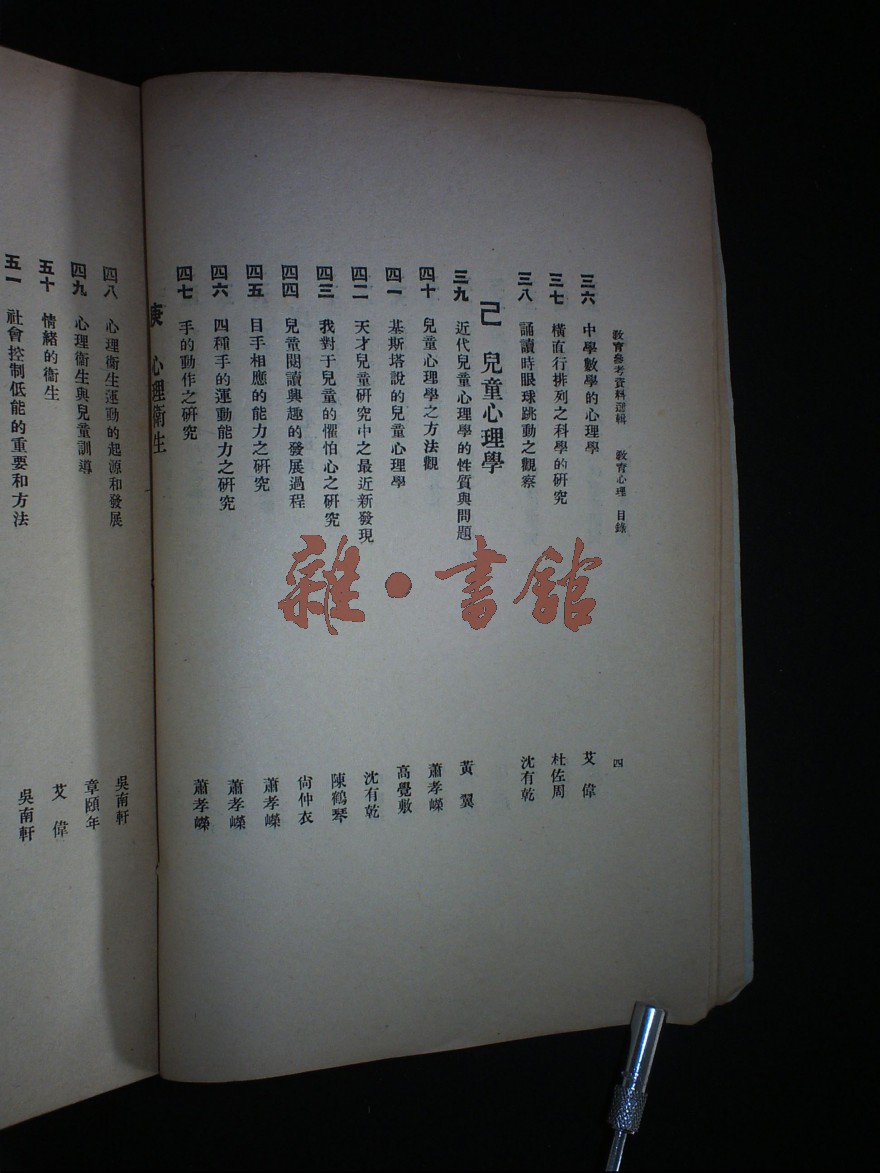 教育參考資料選輯 教育心理 目錄 四
三六 中學數學的心理學 艾偉
三七 橫直行排列之科學的研究 杜佐周
三八 誦讀時眼球跳動之觀察 沈有乾
己 兒童心理學
三九 近代兒童心理學的性質與問題 黃翼
四十 兒童心理學之方法觀 蕭孝嶸
四一 基斯塔說的兒童心理學 高覺敷
四二 天才兒童研究中之最近新發現 沈有乾
四三 我對于兒童的懼怕心之研究 陳鶴琴
四四 兒童閱讀興趣的發展過程 尙仲衣
四五 目手相應的能力之研究 蕭孝嶸
四六 四種手的運動能力之研究 蕭孝嶸
四七 手的動作之研究 蕭孝嶸
庚 心理衛生
四八 心理衛生運動的起源和發展 吳南軒
四九 心理衞生與兒童訓導 章頤年
五十 情緒的衞生 艾偉
五一 社會控制低能的重要和方法 吳南軒
雜·書館